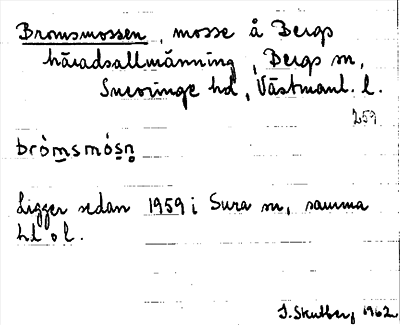 Bromsmossen, mosse å Bergs
häradsallmänning, Bergs sn,
Snevringe hd, Västmanl. l.
259
bròmsmósn
Ligger sedan 1959 i Sura sn, samma
hd o l.
1962